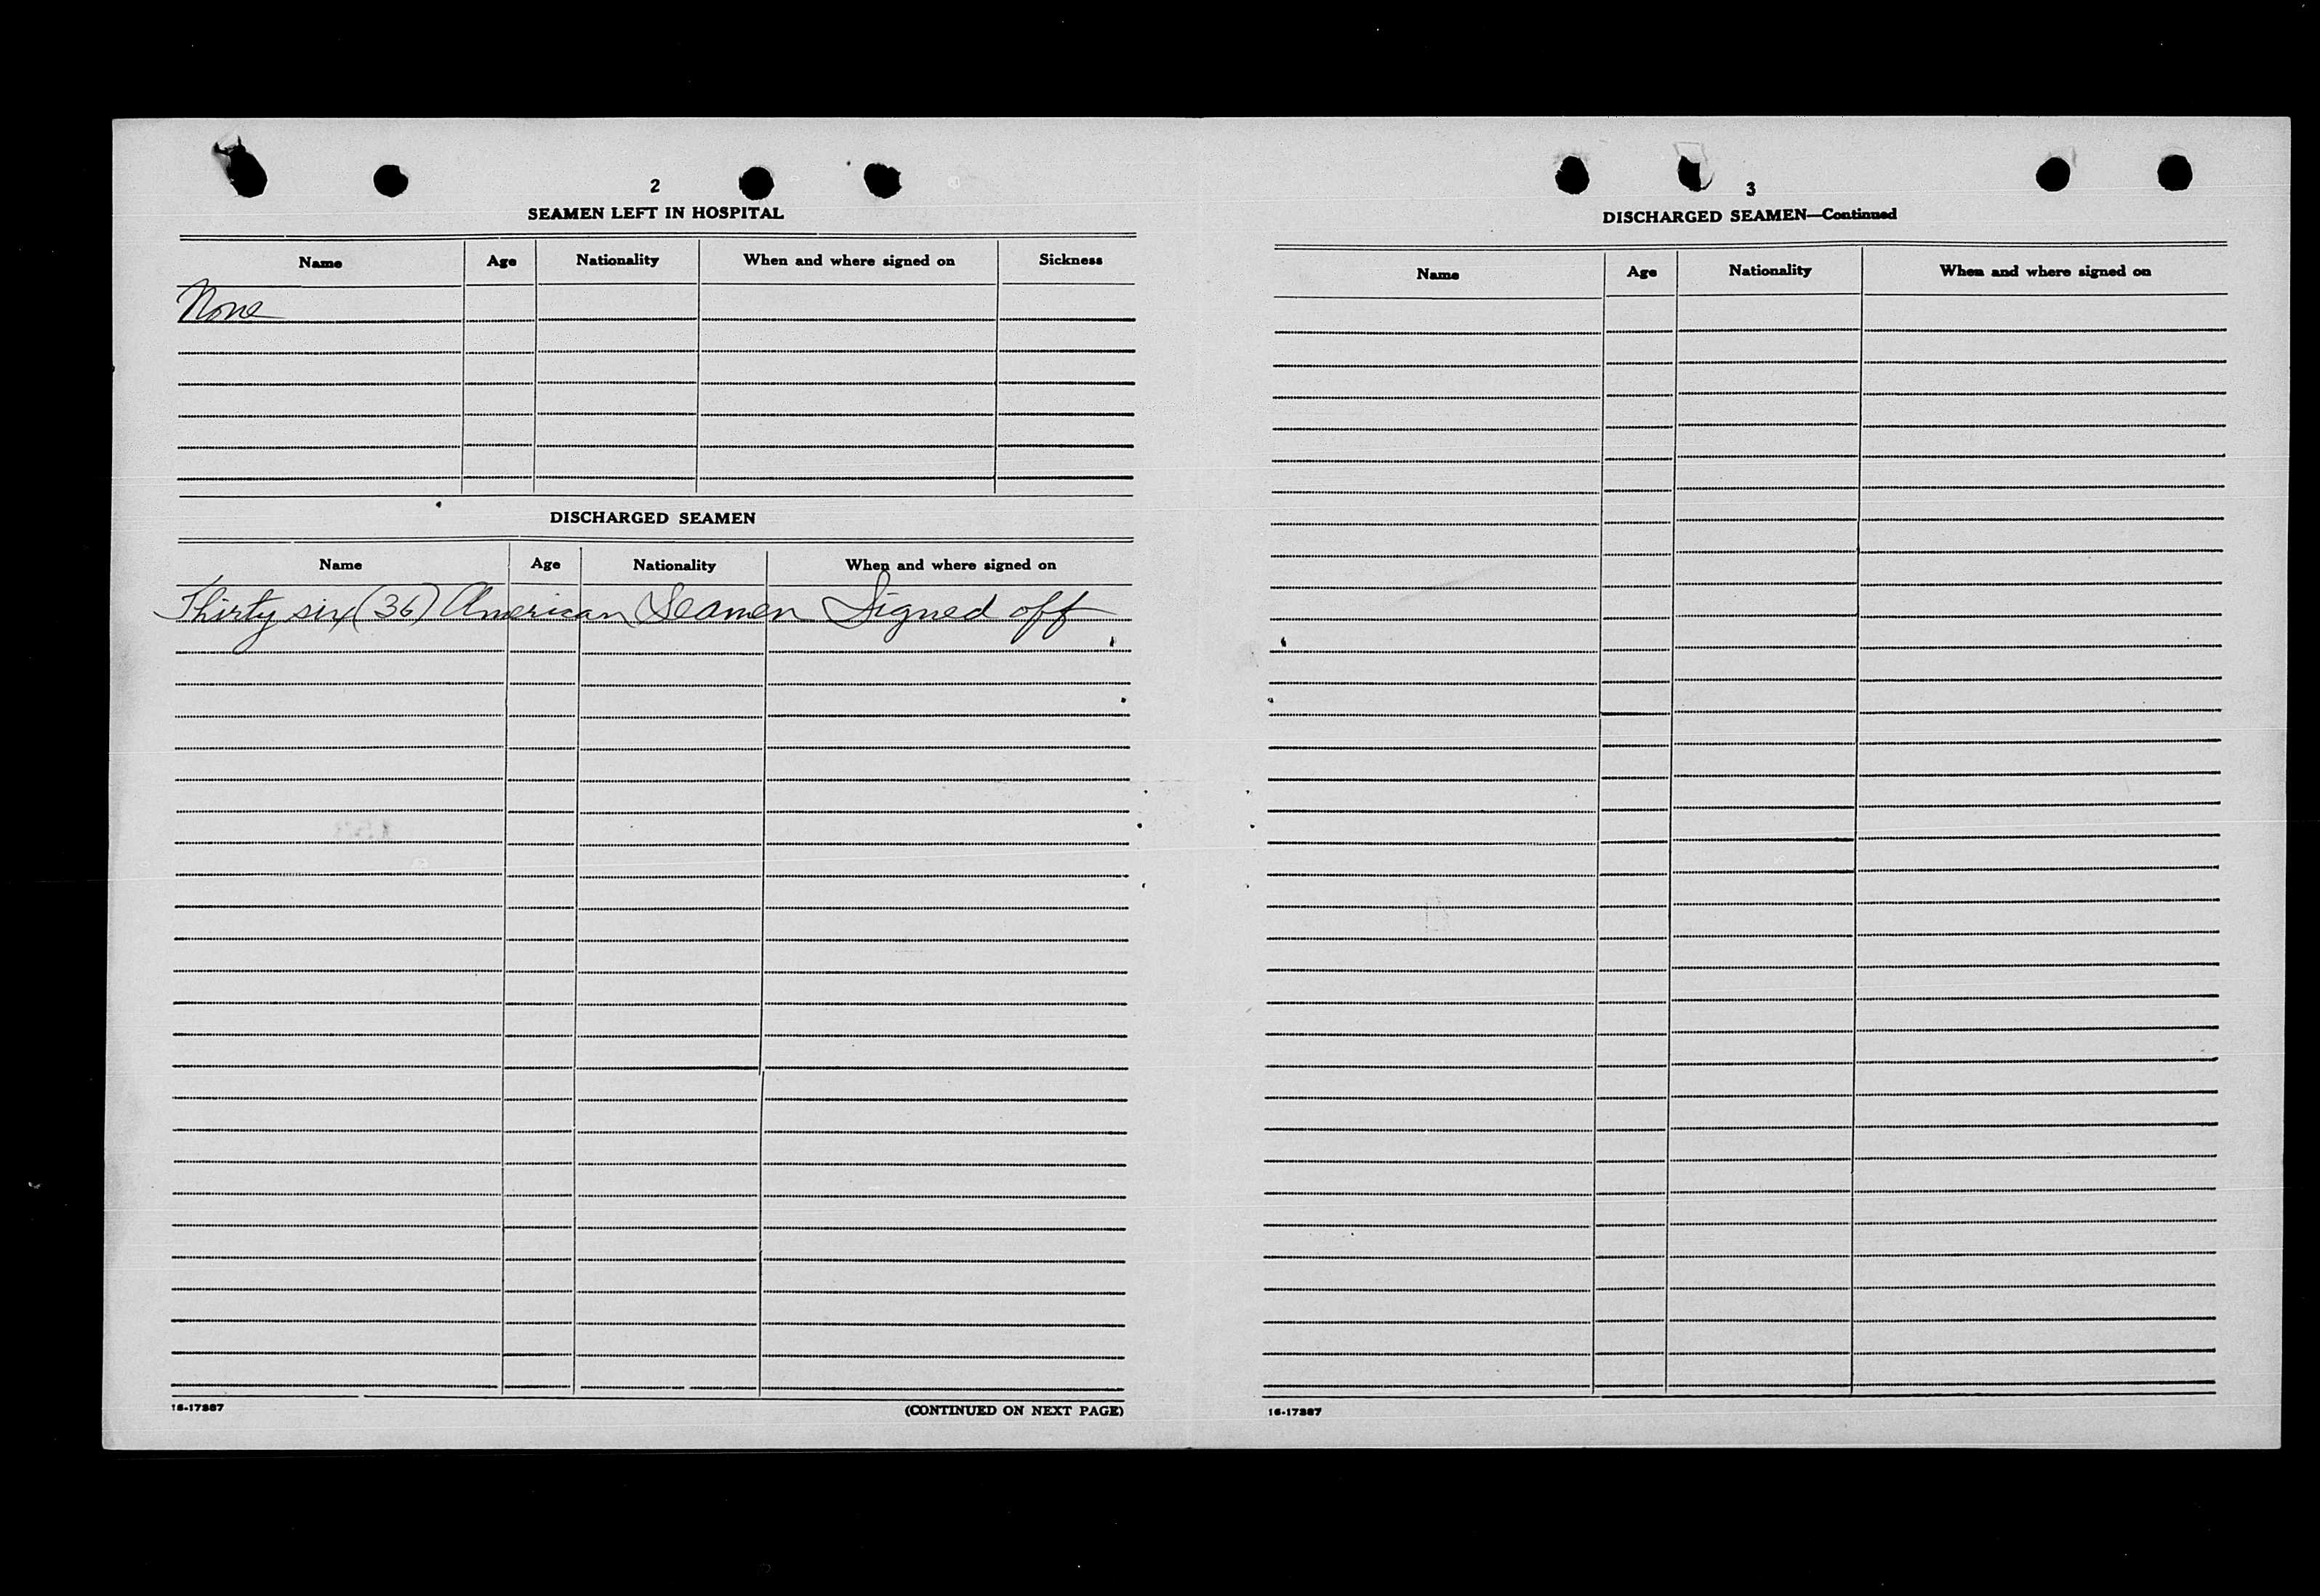 2
SEAMEN LEFT IN HOSPITAL
Name Age Nationality When and where signed on Sickness
None
DISCHARGED SEAMEN
Name Age Nationality When and where signed on
Thirty six (36) American Seamen Signed off
16-17387 (CONTINUED ON NEXT PAGE)
3
DISCHARGED SEAMEN—Continued
Name Age Nationality When and where signed on
16-17387